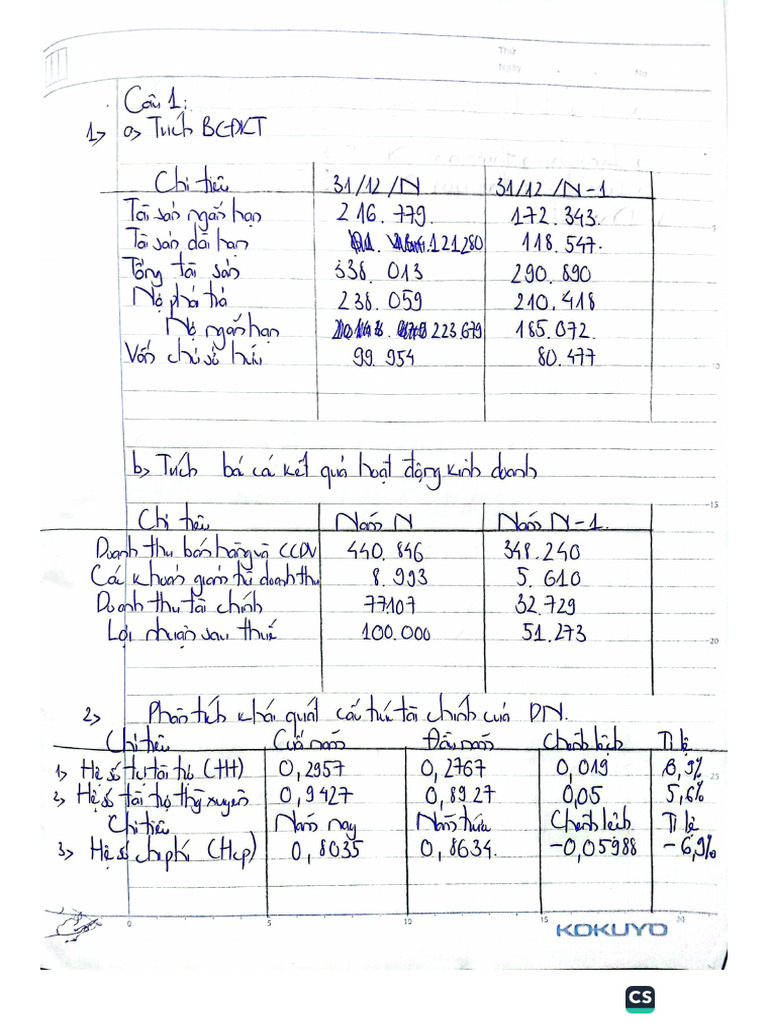 Thứ
Ngày . . No
Câu 1:
1> a> Trích BCĐKT
Chỉ tiêu 31/12/N 31/12/N-1
Tài sản ngắn hạn 216.779. 172.343.
Tài sản dài hạn 121280 118.547.
Tổng tài sản 338.013 290.890
Nợ phải trả 238.059 210.418
Nợ ngắn hạn 223.679 185.072.
Vốn chủ sở hữu 99.954 80.477
b> Trích bá cá kết quả hoạt động kinh doanh
Chỉ tiêu Năm N Năm N-1.
Doanh thu bán hàng và CCDV 440.846 348.240
Các khoản giảm trừ doanh thu 8.993 5.610
Doanh thu tài chính 77.107 32.729
Lợi nhuận sau thuế 100.000 51.273
2> Phân tích khái quát cấu trúc tài chính của DN.
Chỉ tiêu Cuối năm Đầu năm Chênh lệch Tỉ lệ
1> Hệ số tự tài trợ (Htt) 0,2957 0,2767 0,019 6,9%
2> Hệ số tài trợ thg xuyên 0,9427 0,8927 0,05 5,6%
Chỉ tiêu Năm nay Năm trước Chênh lệch Tỉ lệ
3> Hệ số chi phí (Hcp) 0,8035 0,8634. -0,05988 -6,9%
0 5 10 15 20
KOKUYO
CS